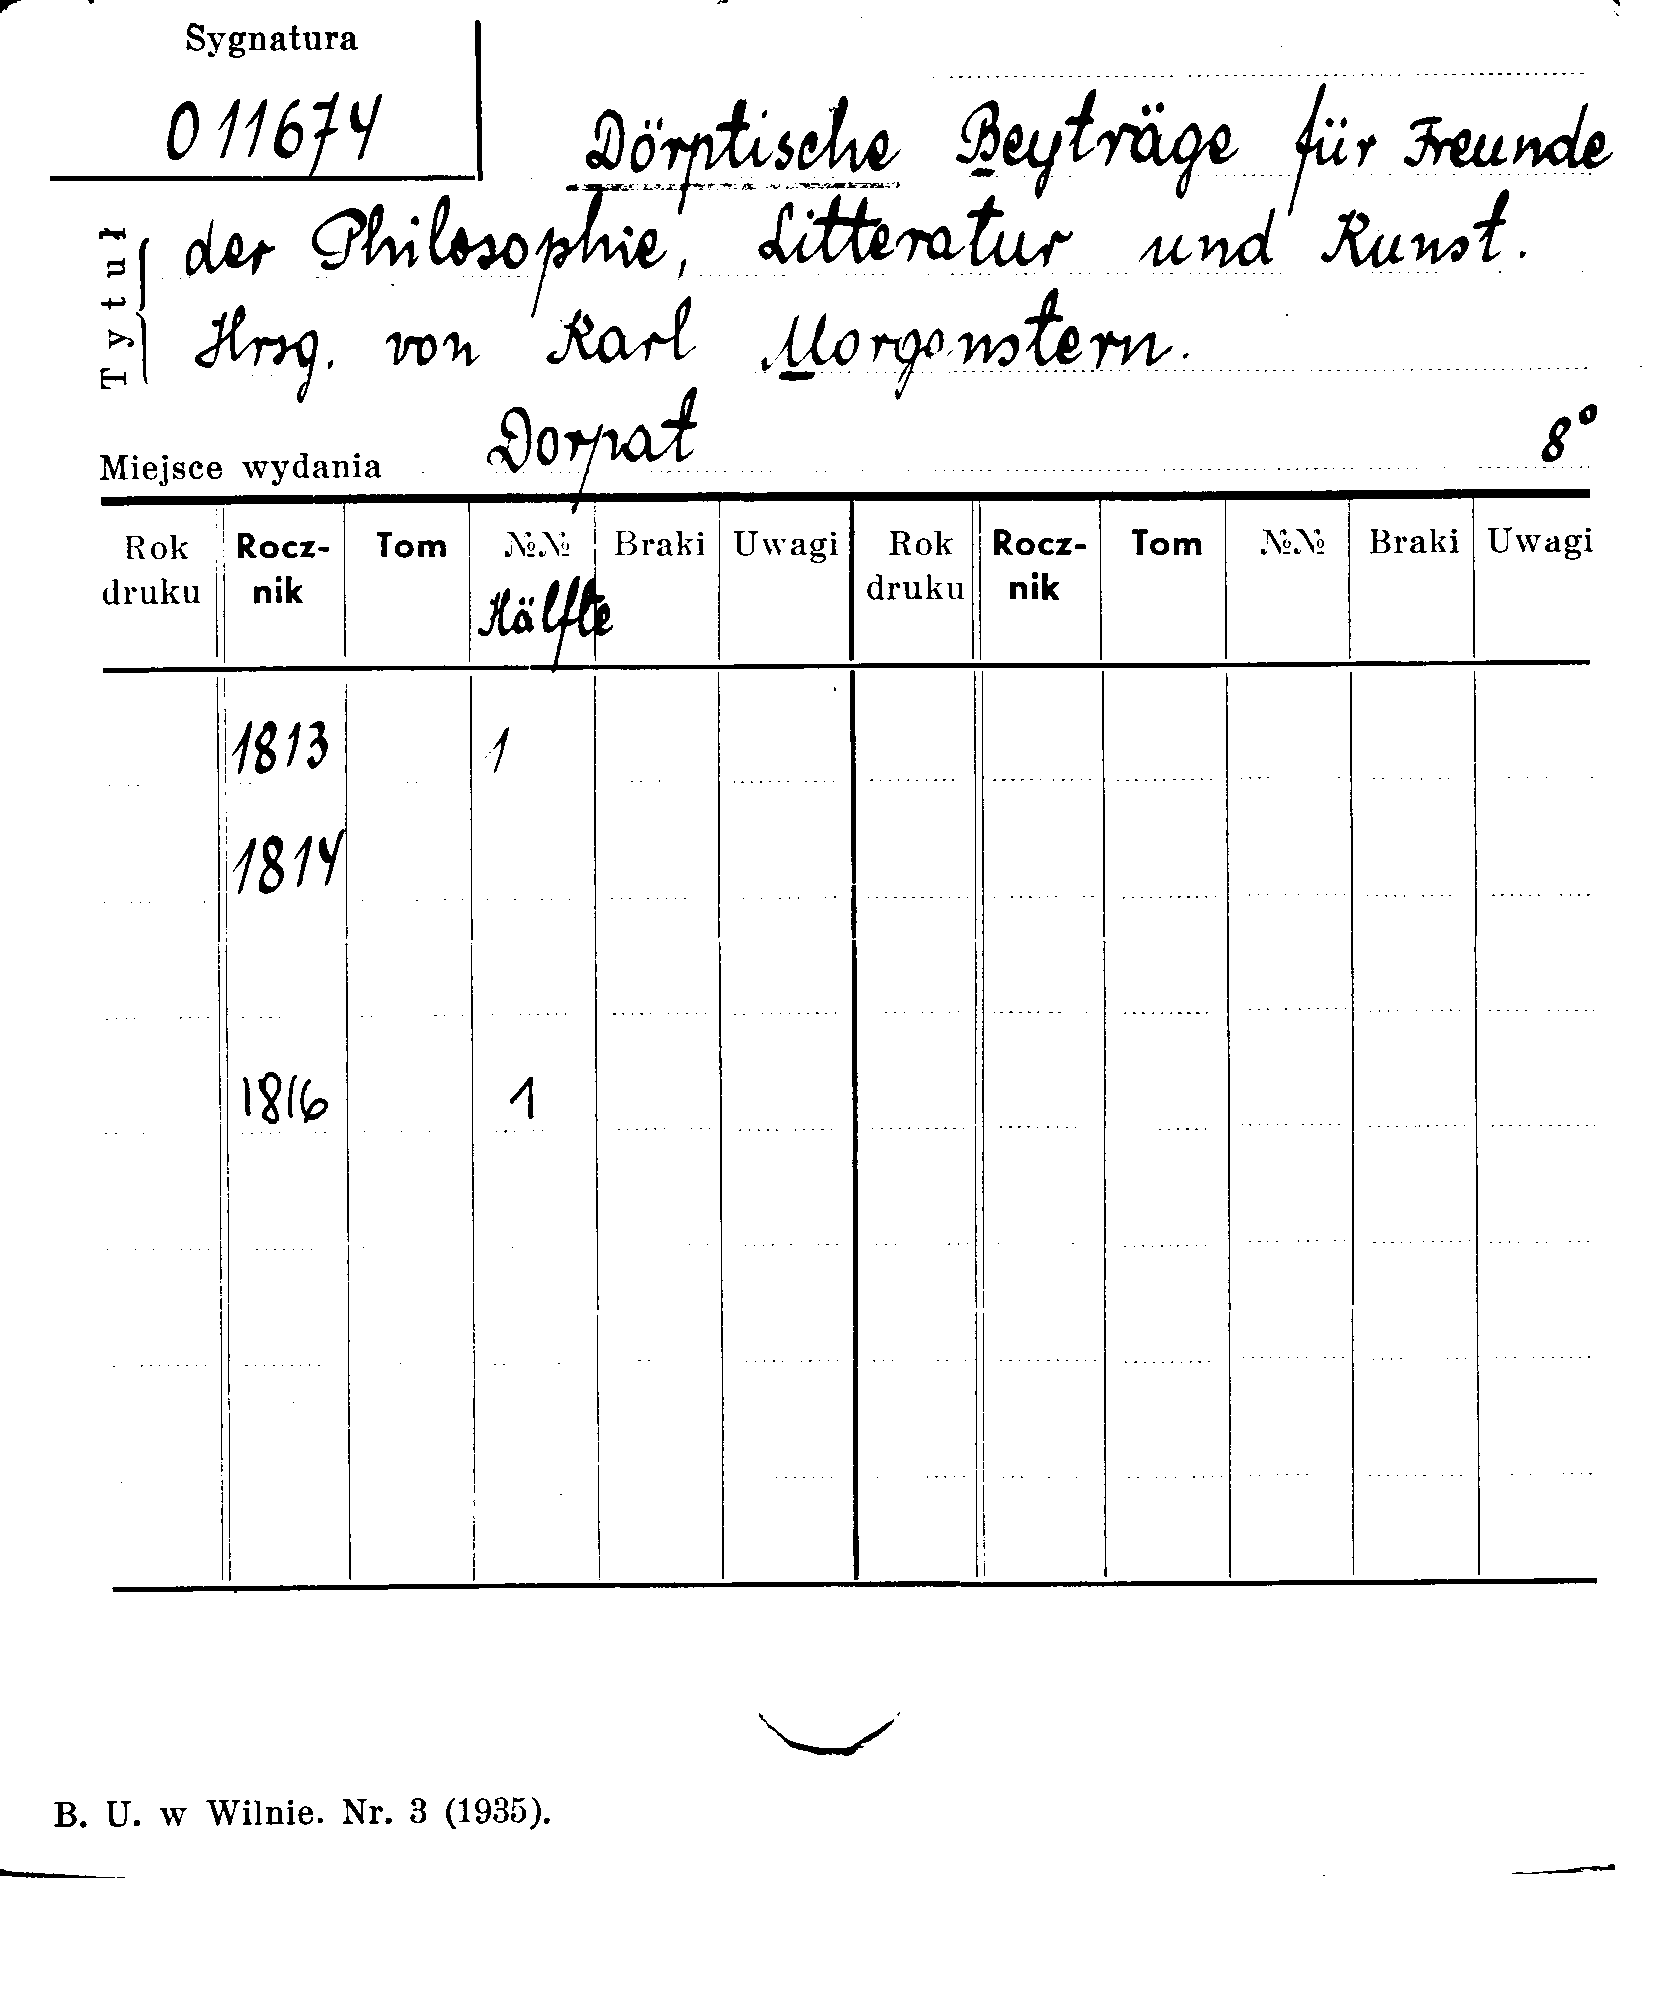 Sygnatura
011674
Dörptische Beyträge für Freunde
der Philosophie, Litteratur und Kunst.
Hrsg. von Karl Morgenstern.
Tytuł
Miejsce wydania Dorpat 8°
Rok druku Rocz-nik Tom №№ Braki Uwagi Rok druku Rocz-nik Tom №№ Braki Uwagi
Hälfte
1813 1
1814
1816 1
B. U. w Wilnie. Nr. 3 (1935).